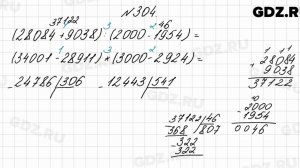 N304.
GDZ.RU
37122 46
(28084 + 9038) : (2000 - 1954) =
(34001 - 28911) * (3000 - 2924) =
24786 | 306
12443 | 541
28084
9038
37122
2000
1954
0046
37122 | 46
368 | 807
322
322
GDZ.RU